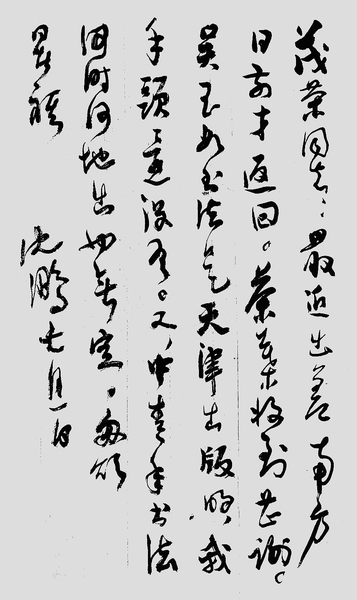 茂荣同志：最近出差南方
日前才返回。茶葉收到甚谢。
吴玉如书法是天津出版的，我
手頭没有。又，中青年书法
何时何地出无定，匆颂
暑祺
沈鹏七月一日